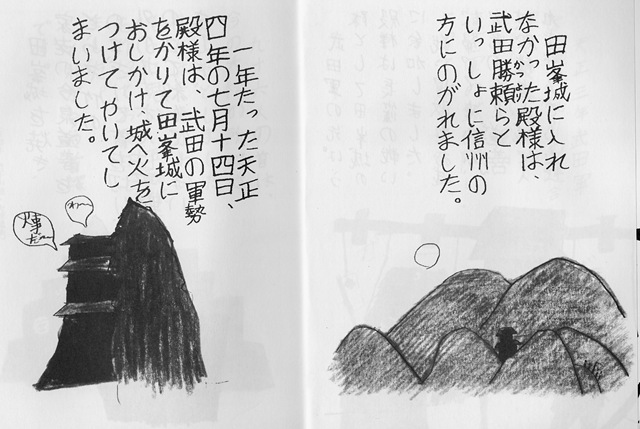 田峯城に入れ
なかった殿様は、
武田勝頼らと
かつより
いっしょに信州の
方にのがれました。
一年たった天正
四年の七月十四日、
殿様は、武田の軍勢
をかりて田峯城に
おしかけ、城へ火を
つけてやいてし
まいました。
わー
火事
だー